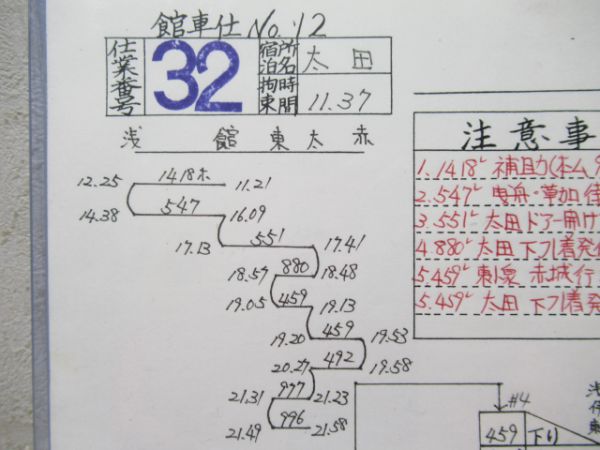 館車仕 No.12
仕業番号 32 宿泊所名 太田
拘束時間 11.37
浅 館 東 太 赤
12.25 1418ホ 11.21
14.38 547 16.09
17.13 551 17.41
18.57 880 18.48
19.05 459 19.13
19.20 459 19.53
20.27 492 19.58
21.31 977 21.23
21.49 996 21.58
注意事
1.1418レ 補助(ホム
2.547レ 曳舟・草加
3.551レ 太田ドアー開け
4.880レ 太田 下り着発
5.459レ 東泉 赤城行
5.459レ 太田 下り着発
#4
459 下り
浅
伊
東